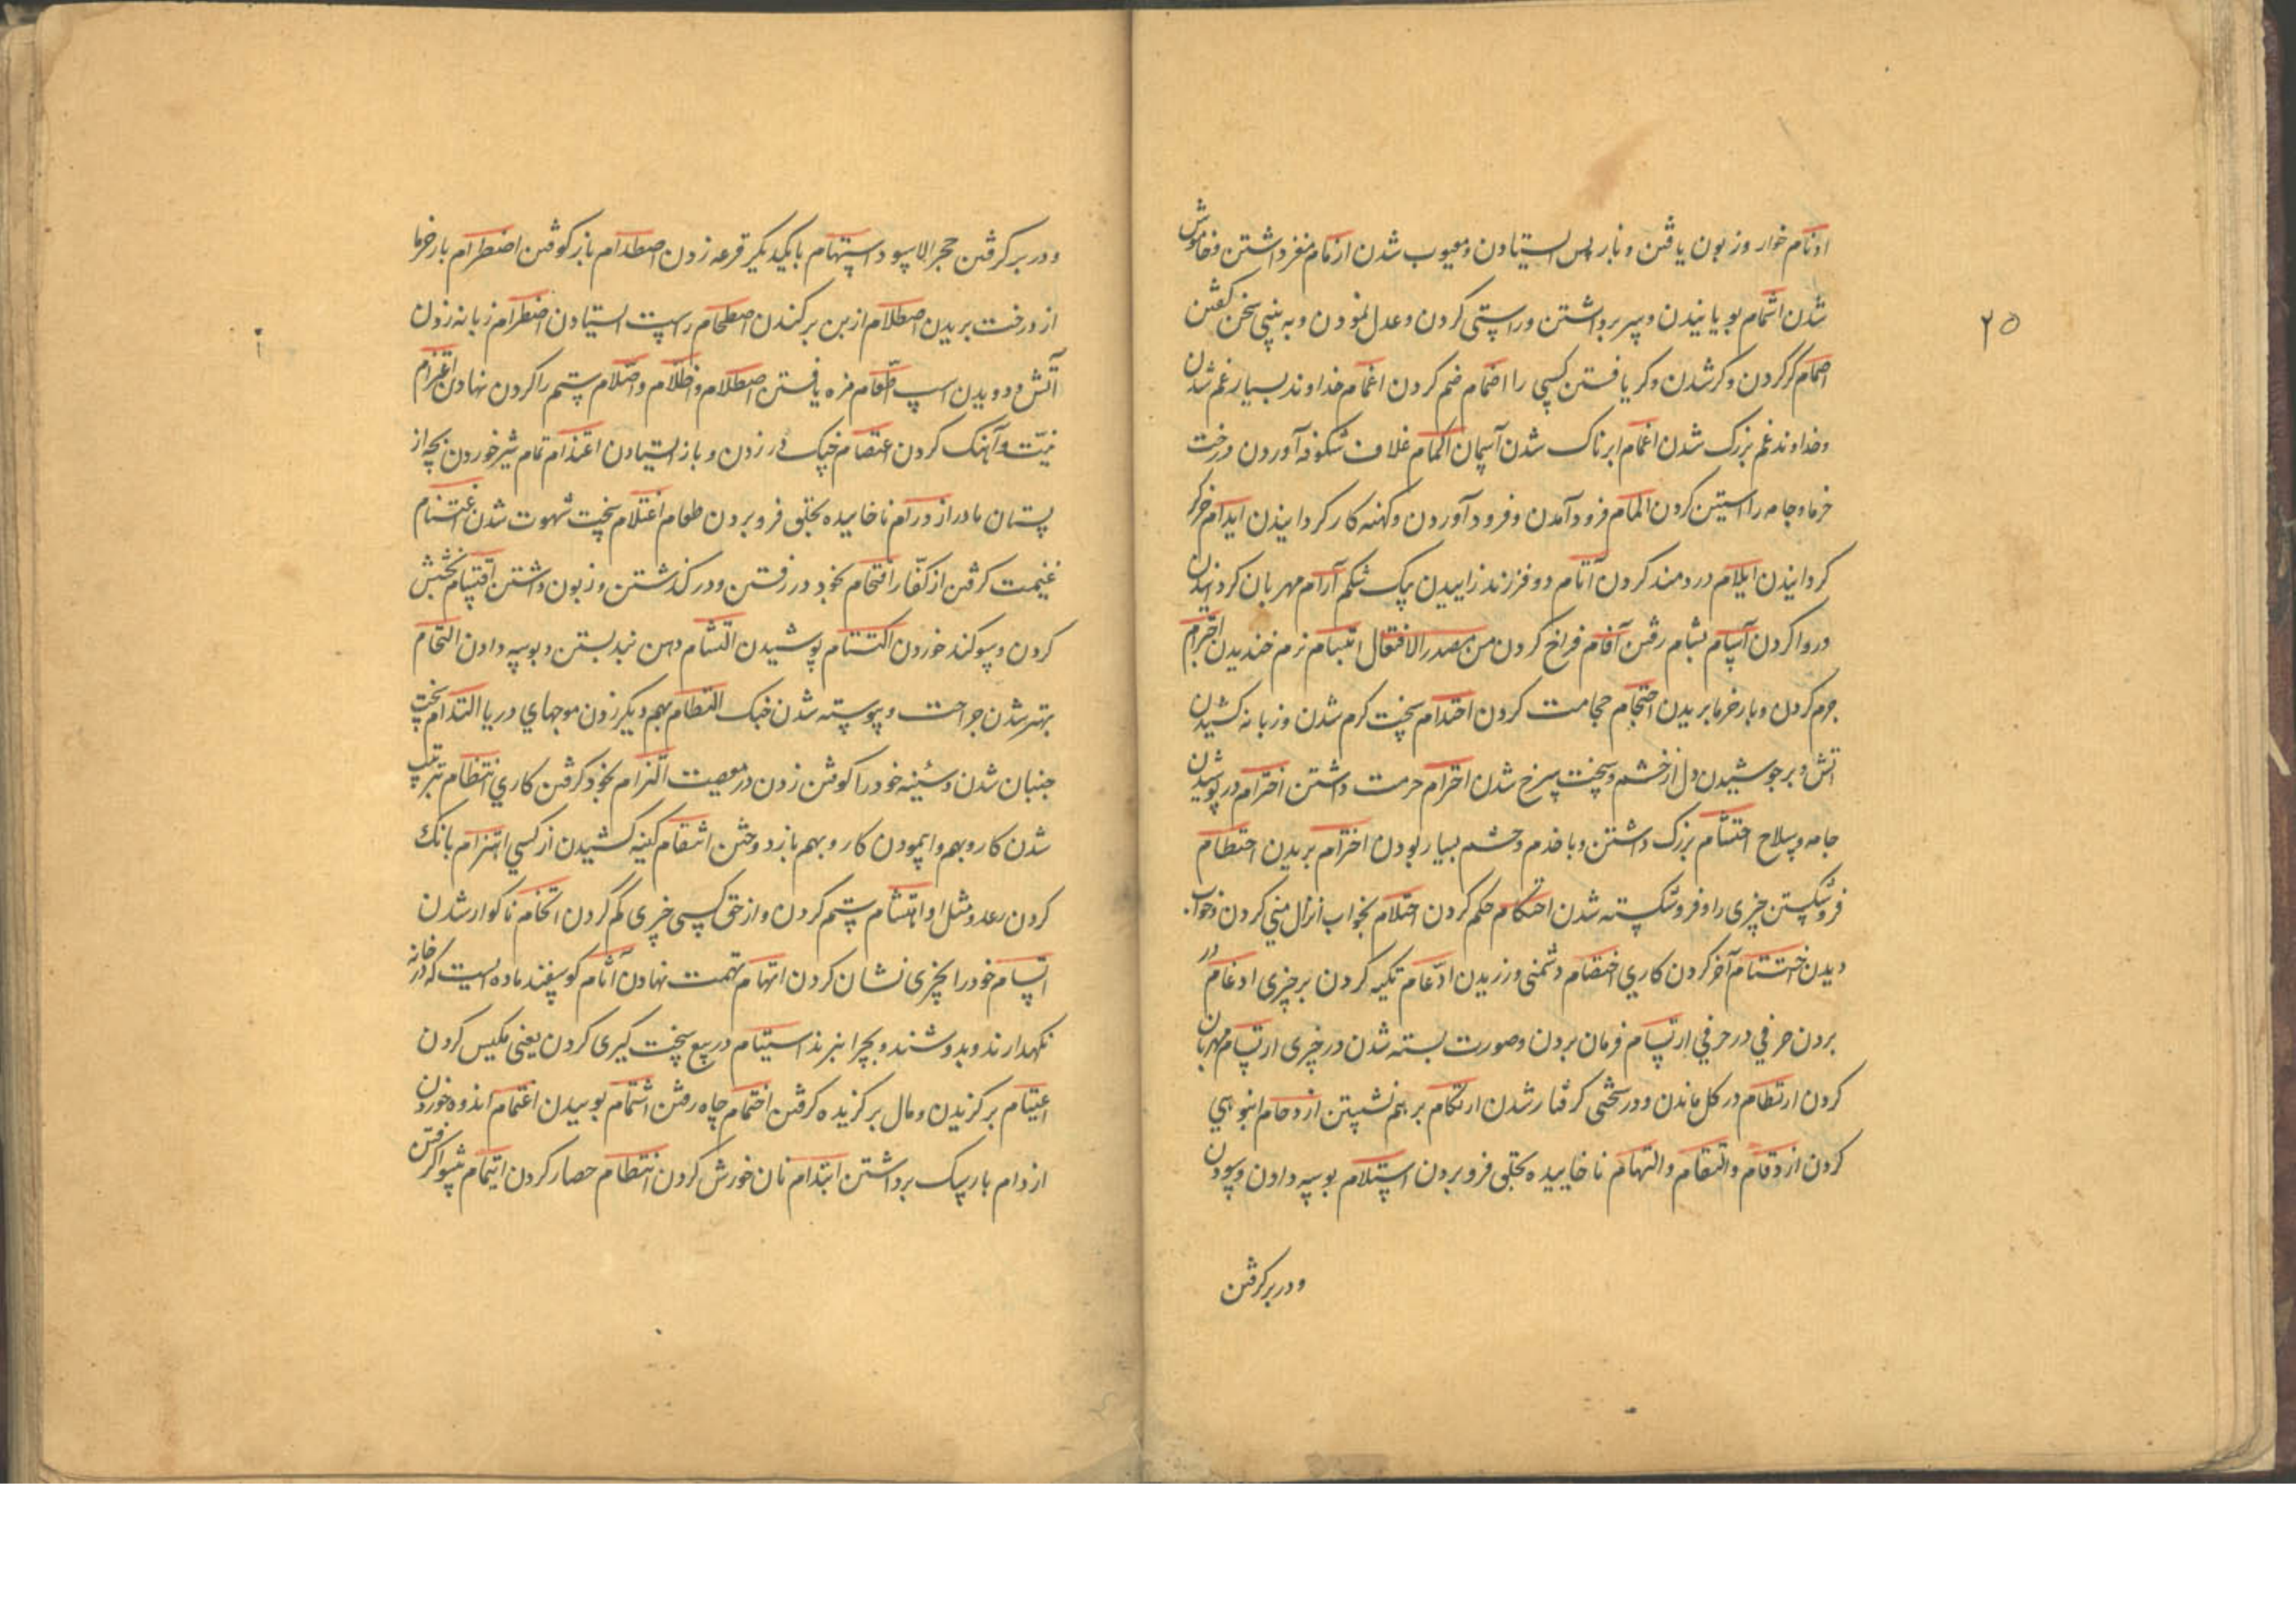 اذمام خوار و زبون یافتن و بار پس ایستادن و معیوب شدن ازمام مغز داشتن و خاموش
شدن اشمام بویانیدن و سر برداشتن و راستی کردن و عدل نمودن و به بینی سخن گفتن
اصمام کر کردن و کر شدن و کر یافتن کسی را اضمام ضم کردن اغمام خداوند بسیار غم شدن
و خداوند غم بزرک شدن اغمام ابرناک شدن آسمان اکمام غلاف شکوفه آوردن درخت
خرما و جامه را آستین کردن المام فرود آمدن و فرود آوردن و کهنه کار کردانیدن ایدام
کردانیدن ایلام دردمند کردن آتام دو فرزند زاییدن بیک شکم آرام مهربان کردنیدن
دروا کردن آسام بشام رفتن آفام فراخ کردن من مصدر الافتعال ابتسام نرم خندیدن اجترام
جرم کردن و بار خرما بریدن احتجام حجامت کردن احتدام سخت کرم شدن و زبانه کشیدن
اتش و برجوشیدن دل از خشم و سخت سرخ شدن احترام حرمت داشتن احترام در پوشیدن
جامه و سلاح احتشام بزرک داشتن و با خدم و حشم بسیار بودن اخترام بریدن احتطام
فروشکستن چیزی را و فروشکسته شدن احتکام حکم کردن احتلام بخواب انزال منی کردن و خواب
دیدن اختتام آخر کردن کاری اختصام دشمنی ورزیدن ادّعام تکیه کردن بر چیزی ادغام در
بردن حرفی در حرفی ارتسام فرمان بردن و صورت بسته شدن در چیزی ارتسام مهربان
کردن ارتطام در کل ماندن و در سختی کرفتار شدن ارتکام بر هم نشستن ازدحام انبوهی
کردن ازدقام و التقام و التهام ناخاییده بحلق فرو بردن استلام بوسه دادن و سودن
و در بر کرفتن
۲۵
و در بر کرفتن حجر الاسود استهام با یکدیکر قرعه زدن اصطدام باز کوفتن اضطرام بار خرما
از درخت بریدن اصطلام از بن بر کندن اصطخام راست ایستادن اضطرام زبانه زدن
آتش و دویدن اسپ طّعام مزه یافتن اصطلام و اظّلام و اصّلام ستم را کردن نهادن اعتزام
نیّت و آهنک کردن اعتصام چنک در زدن و باز ایستادن اعتذام تمام شیر خوردن بچه از
پستان مادر ازدرام ناخاییده بحلق فرو بردن طعام اغتلام سخت شهوت شدن اغتنام
غنیمت کرفتن از کفّار اقتحام بخود در رفتن و در کذشتن و زبون داشتن اقتسام بخش
کردن و سوکند خوردن اکتتام پوشیدن التثام دهن بند بستن و بوسه دادن التحام
بهتر شدن جراحت و پیوسته شدن جنک التطام بهم دیکر زدن موجهای دریا التدام سخت
جنبان شدن و سینه خود را کوفتن زدن در مصیبت التزام بخود کرفتن کاری انتظام ترتیب
شدن کار و بهم پیمودن کار و بهم باز دوختن انتقام کینه کشیدن از کسی اهتزام بانک
کردن رعد و مثل او اهتشام ستم کردن و از حق کسی چیزی کم کردن اتخام ناکوار شدن
اتسام خود را بچیزی نشان کردن اتهام تهمت نهادن آتام کوسفند ماده ایست که در خانه
نکهدارند و بدوشند و بچرا نبرند استیام در بیع سخت کیری کردن یعنی مکیس کردن
اعتیام بر کزیدن و مال بر کزیده کرفتن اختمام چاه رفتن اشتمام بوییدن اغتمام اندوه خوردن
ازدام بار سبک برداشتن ابتدام نان خورش کردن انتطام حصار کردن ایتمام پیشوا کرفتن